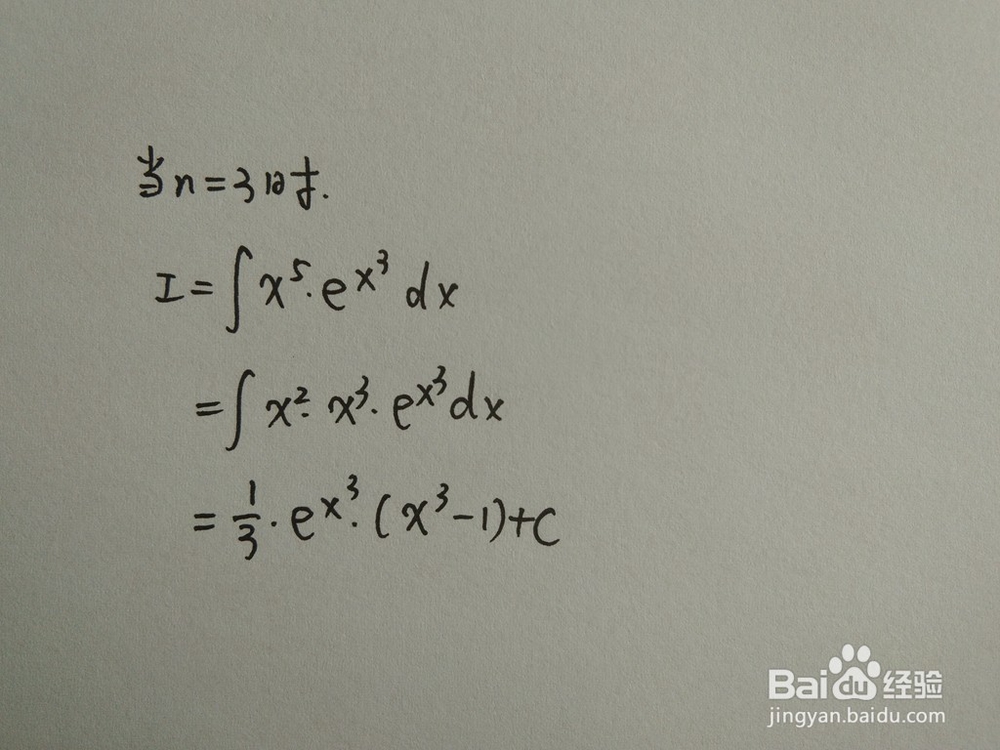 当n=3时.
I=∫x⁵·eˣ³ dx
=∫x²·x³·eˣ³dx
=1/3·eˣ³·(x³-1)+C
Baidu经验
jingyan.baidu.com